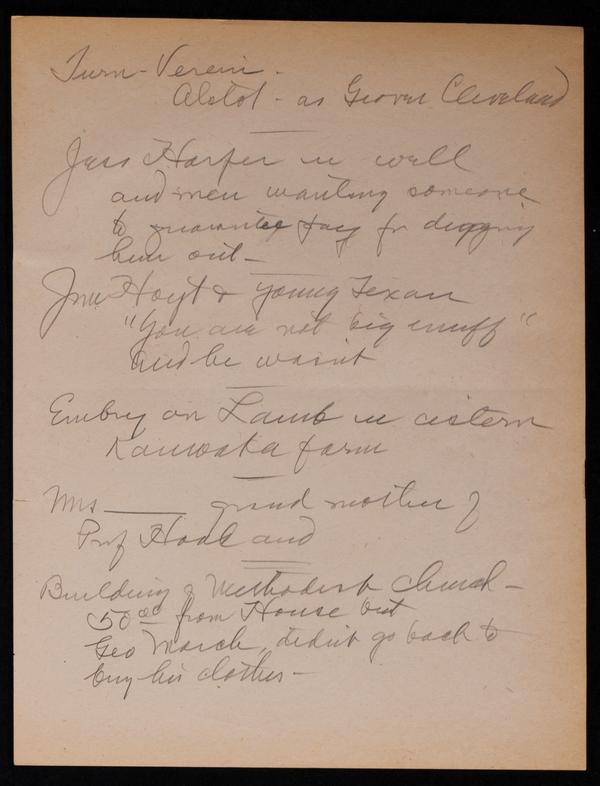 Turn-Verein -
Alstot - as Grover Cleveland
Jass Harper in well
and men wanting someone
to guarantee pay for digging
him out -
Jno Hoyt & young Texan
"You are not big enuff"
and he wasn't
Embry on Lamb in cistern
Kanwaka farm
Mrs ____ grand mother of
Prof and
Building of Methodist Church -
50 00 from House but
Geo March, didn't go back to
buy his clothes -